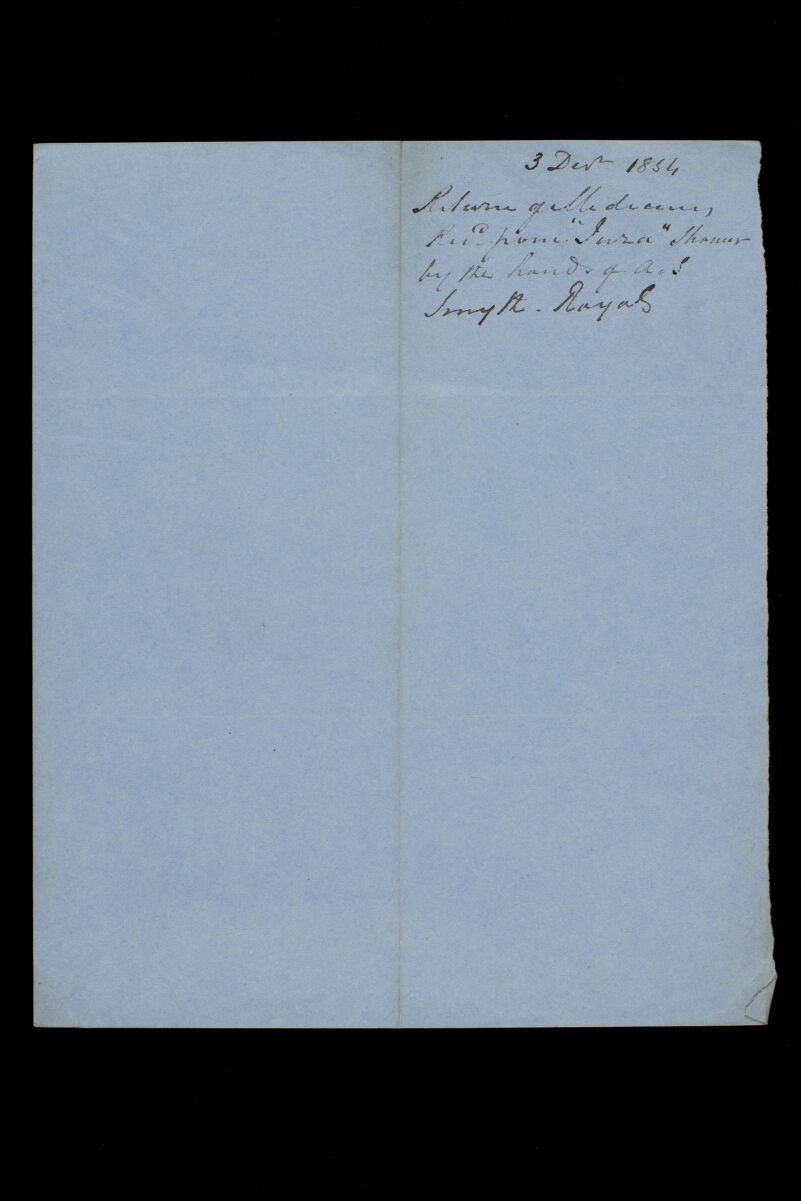 3 Decr 1854
Return of Medicines,
Recd from "Jura" Steamer
by the hands of A. S
Smyth - Royals